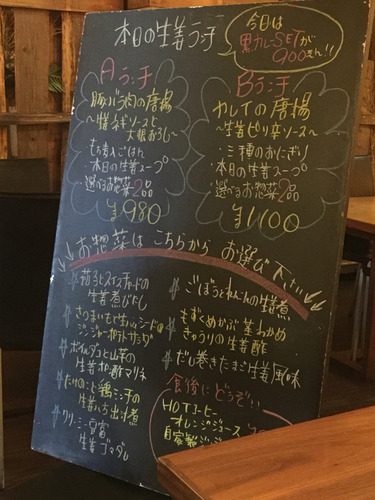 本日の生姜ランチ
今日は
黒カレーSETが
900えん!!
Aランチ
豚バラ肉の唐揚
〜生姜ネギソースと
大根おろし〜
もち麦ごはん
・本日の生姜スープ
・選べるお惣菜2品
¥980
Bランチ
カレイの唐揚
〜生姜ピリ辛ソース〜
・三種のおにぎり
・本日の生姜スープ
・選べるお惣菜2品
¥1100
お惣菜はこちらからお選び下さい
茄子とスイスチャードの
生姜煮びたし
さつまいもと
ジンジャーポテトサラダ
ボイルダコと山芋の
生姜ポン酢マリネ
たけのこと鶏ミンチの
生姜いち出汁煮
クリーミー豆富
生姜ゴマダレ
ごぼうとれんこんの生姜煮
もずくめかぶ茎わかめ
きゅうりの生姜酢
だし巻きたまご生姜風味
食後にどうぞ!!
HOTコーヒー
オレンジジュース
自家製ジンジ